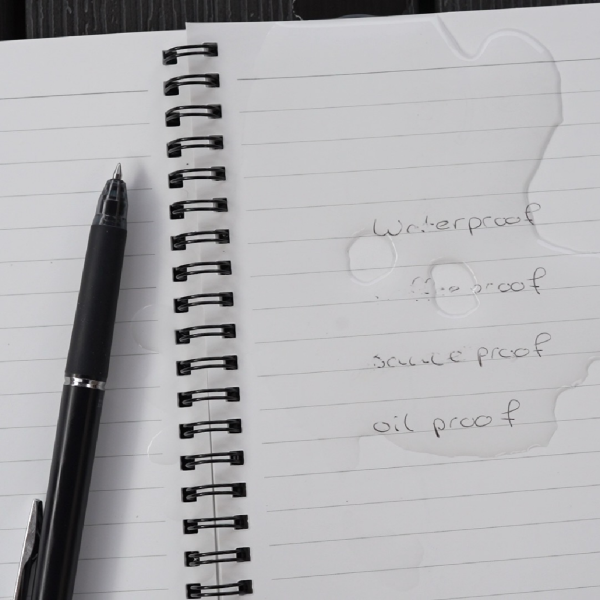 Waterproof
proof
proof
oil proof